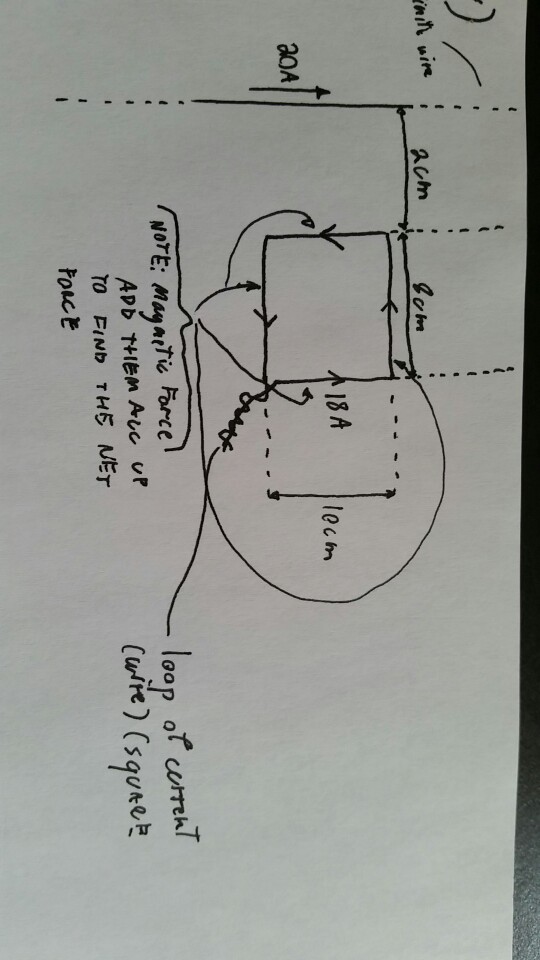 20A
2cm
8cm
18A
10cm
NOTE: Magnetic Force
ADD THEM ALL UP
TO FIND THE NET
FORCE
loop of current
(wire) (SQUARE